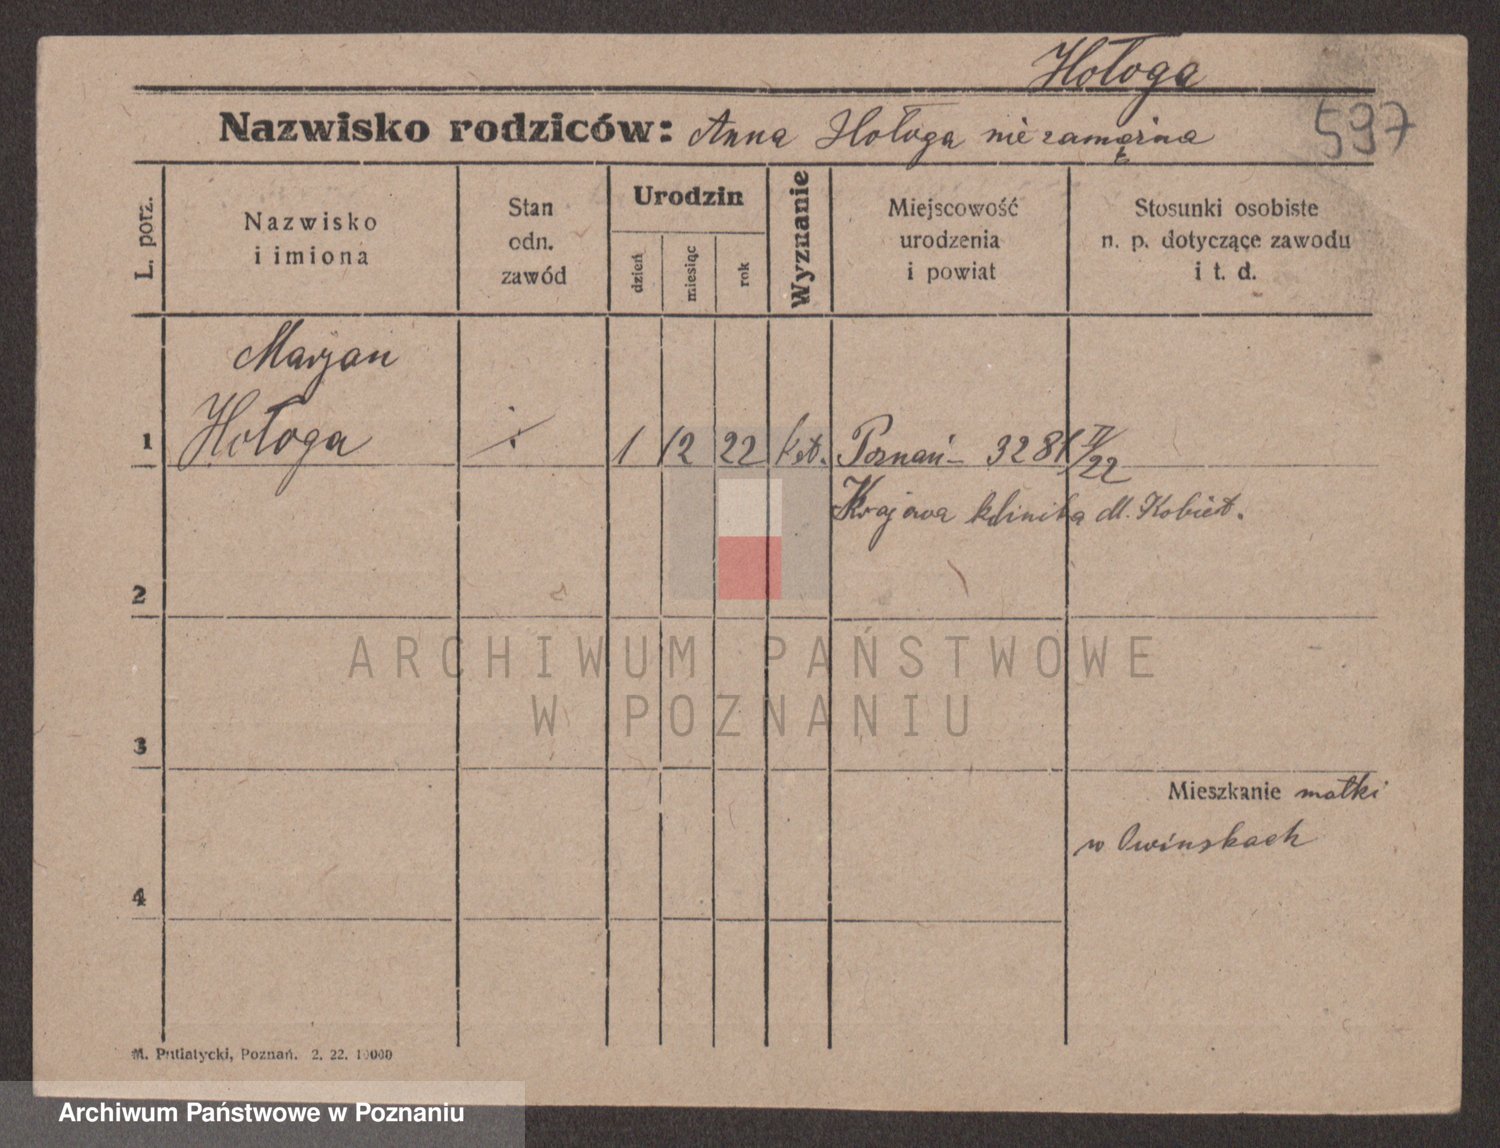 Hołoga
Nazwisko rodziców: Anna Hołoga niezamężna
597
L. porz.
Nazwisko
i imiona
Stan
odn.
zawód
Urodzin
dzień
miesiąc
rok
Wyznanie
Miejscowość
urodzenia
i powiat
Stosunki osobiste
n. p. dotyczące zawodu
i t. d.
Marjan
1 Hołoga ./. 1 12 22 kat. Poznań - 3281 IV/22
Krajowa klinika dl. Kobiet.
2
3
Mieszkanie matki
w Owinskach
4
M. Putiatycki, Poznań. 2. 22. 10000
ARCHIWUM PAŃSTWOWE
W POZNANIU
Archiwum Państwowe w Poznaniu